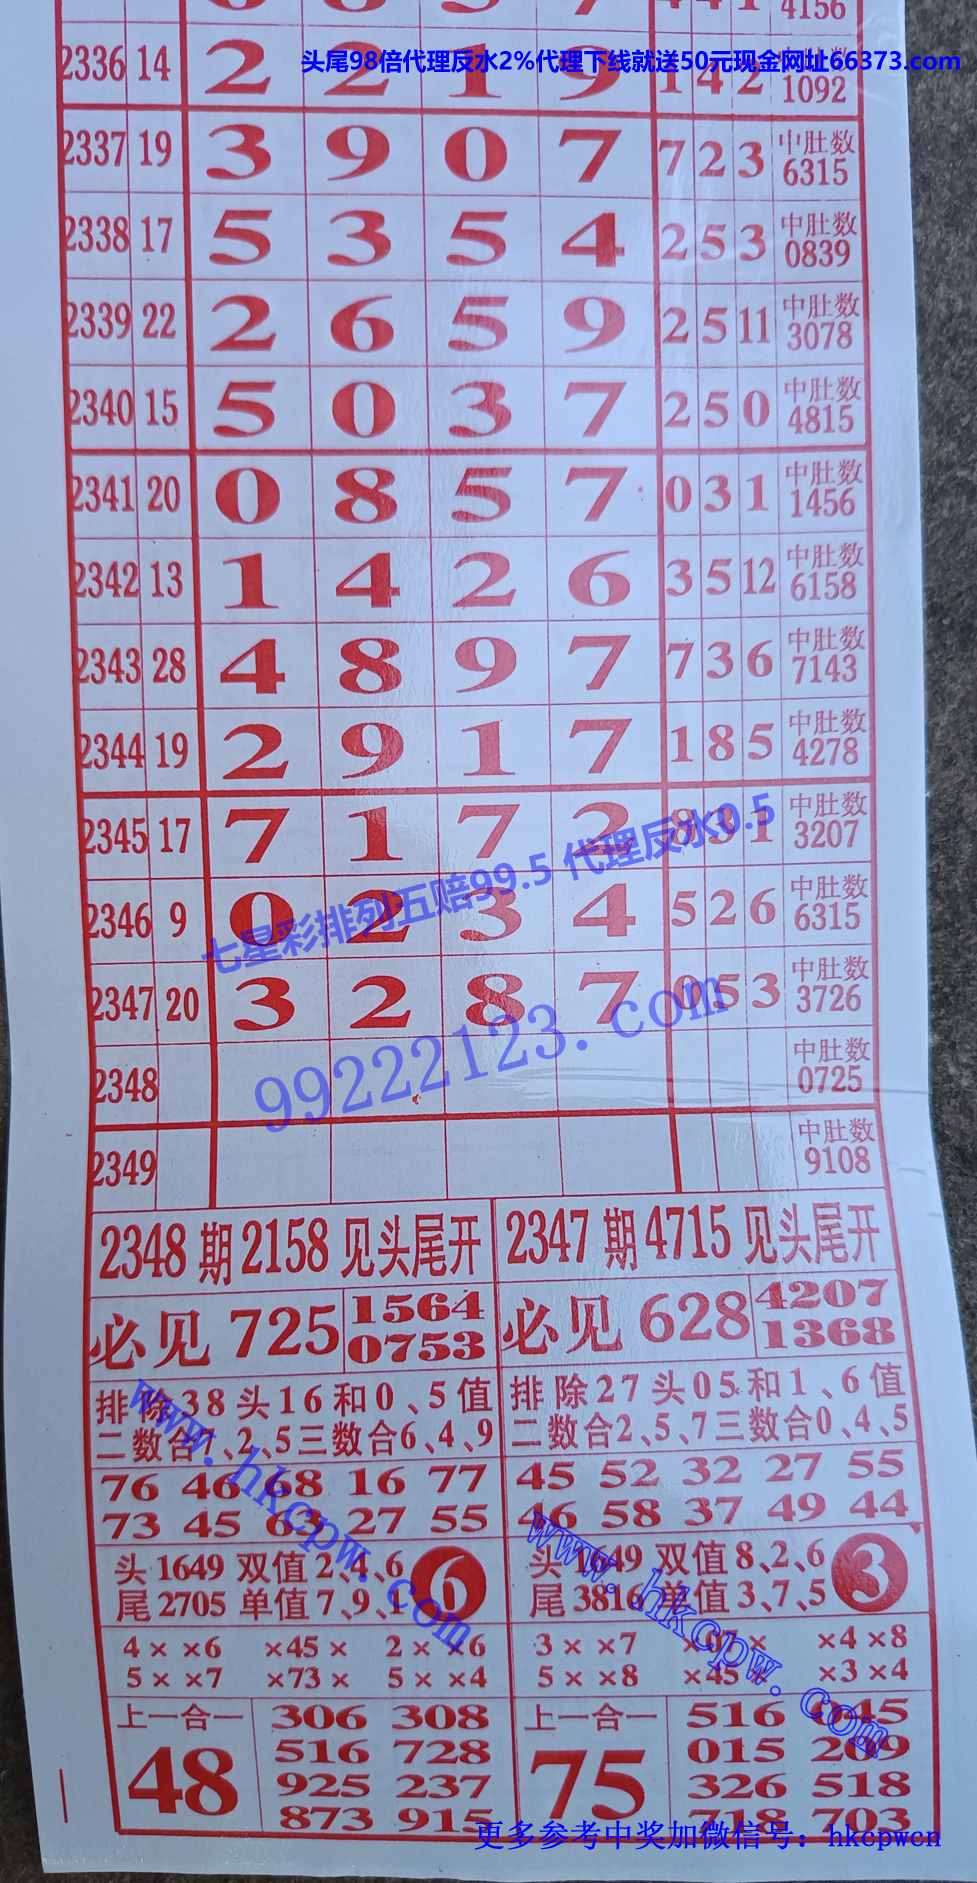 4156
头尾98倍代理反水2%代理下线就送50元现金网址66373.com
2336 14 2 2 1 9 1 4 2 中肚数 1092
2337 19 3 9 0 7 7 2 3 中肚数 6315
2338 17 5 3 5 4 2 5 3 中肚数 0839
2339 22 2 6 5 9 2 5 11 中肚数 3078
2340 15 5 0 3 7 2 5 0 中肚数 4815
2341 20 0 8 5 7 0 3 1 中肚数 1456
2342 13 1 4 2 6 3 5 12 中肚数 6158
2343 28 4 8 9 7 7 3 6 中肚数 7143
2344 19 2 9 1 7 1 8 5 中肚数 4278
2345 17 7 1 7 2 8 3 1 中肚数 3207
七星彩排列五赔99.5 代理反水0.5
2346 9 0 2 3 4 5 2 6 中肚数 6315
2347 20 3 2 8 7 0 5 3 中肚数 3726
99222123.com
2348 中肚数 0725
2349 中肚数 9108
2348期2158见头尾开
必见 725 1564 0753
排除38头16和0、5值
二数合7、2、5三数合6、4、9
76 46 68 16 77
73 45 63 27 55
头1649 双值2、4、6
尾2705 单值7、9、1
6
4××6 ×45× 2××6
5××7 ×73× 5××4
上一合一
48
306 308
516 728
925 237
873 915
www.hkcpw.com
2347期4715见头尾开
必见 628 4207 1368
排除27头05和1、6值
二数合2、5、7三数合0、4、5
45 52 32 27 55
46 58 37 49 44
头1649 双值8、2、6
尾3816 单值3、7、5
3
3××7 ×67× ×4×8
5××8 ×45× ×3×4
上一合一
75
516 045
015 269
326 518
718 703
www.hkcpw.com
更多参考中奖加微信号：hkcpwcn